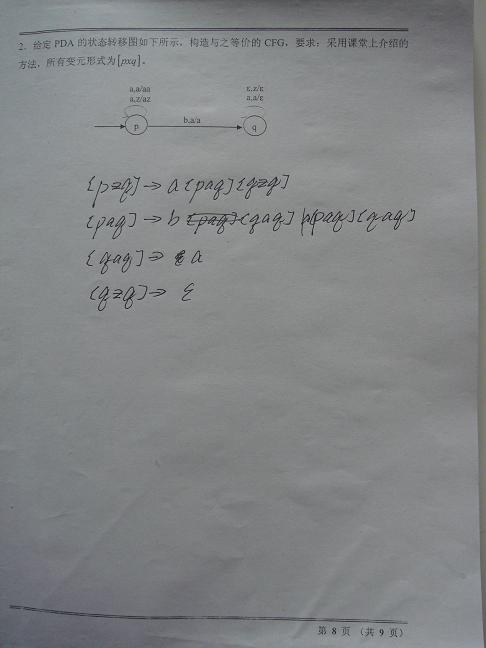 2. 给定 PDA 的状态转移图如下所示，构造与之等价的 CFG，要求：采用课堂上介绍的
方法，所有变元形式为[pxq]。
a,a/aa
a,z/az
ε,z/ε
a,a/ε
p
b,a/a
q
[pzq]→ a[paq][qzq]
[paq]→ b [paq] [qaq] | a[paq][qaq]
[qaq]→ a
[qzq]→ ε
第 8 页 （共 9 页）